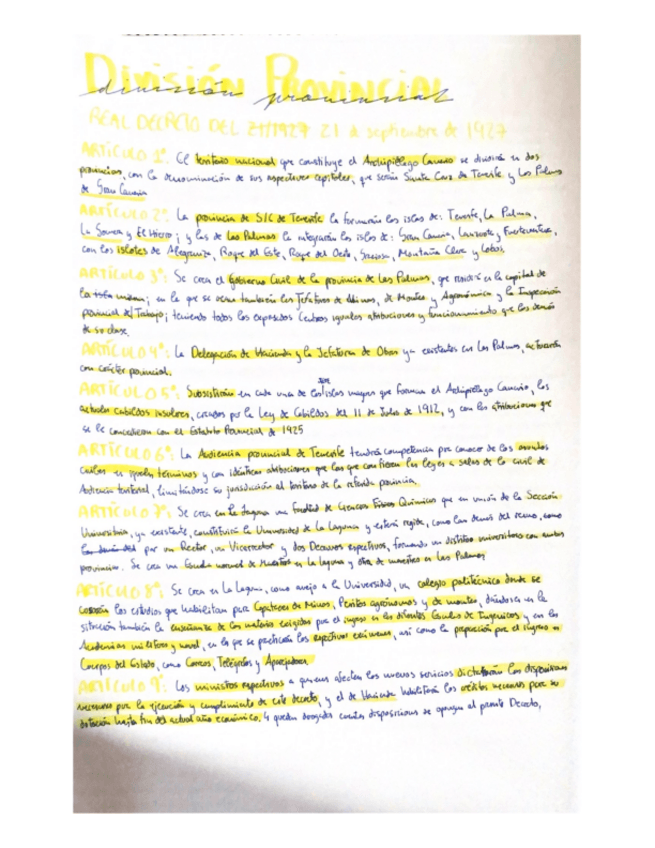 División Provincial
división provincial
REAL DECRETO DEL 21/1927 21 de septiembre de 1927
ARTÍCULO 1º. El territorio nacional que constituye el Archipiélago Canario se dividirá en dos
provincias, con la denominación de sus respectivas capitales, que serán Santa Cruz de Tenerife y Las Palmas
de Gran Canaria
ARTÍCULO 2º. La provincia de S/C de Tenerife la formarán las islas de: Tenerife, La Palma,
La Gomera y El Hierro; y las de Las Palmas la integrarán las islas de: Gran Canaria, Lanzarote y Fuerteventura,
con los islotes de Alegranza, Roque del Este, Roque del Oeste, Graciosa, Montaña Clara y Lobos.
ARTÍCULO 3º: Se crea el Gobierno Civil de la provincia de Las Palmas, que residirá en la capital de
la misma; en la que se crean también las Jefaturas de Minas, de Montes y Agronómica y la Inspección
provincial del Trabajo; teniendo todos los expresados Centros iguales atribuciones y funcionamiento que los demás
de su clase.
ARTÍCULO 4º: La Delegación de Hacienda y la Jefatura de Obras ya existentes en Las Palmas, actuarán
con carácter provincial.
ARTÍCULO 5º: Subsistirán en cada una de las siete islas mayores que forman el Archipiélago Canario, los
actuales cabildos insulares, creados por la Ley de Cabildos del 11 de Julio de 1912, y con las atribuciones que
se le concedieron con el Estatuto Provincial de 1925
ARTÍCULO 6º: La Audiencia provincial de Tenerife tendrá competencia para conocer de los asuntos
civiles en iguales términos y con idénticas atribuciones que las que confieren las leyes a salas de lo civil de
Audiencia territorial, limitándose su jurisdicción al territorio de la referida provincia.
ARTÍCULO 7º: Se crea en La Laguna una facultad de Ciencias Físico Químicas que en unión de la Sección
Universitaria, ya existente, constituirá la Universidad de La Laguna y estará regida, como las demás del reino, como
por un Rector, un Vicerrector y dos Decanos respectivos, formando un distrito universitario con ambas
provincias. Se crea una Escuela normal de maestros en la laguna y otra de maestros en Las Palmas
ARTÍCULO 8º: Se crea en La Laguna, como anejo a la Universidad, un colegio politécnico donde se
cursarán los estudios que habilitan para Capataces de Minas, Peritos agrónomos y de montes, dándose en la
situación también la enseñanza de las materias exigidas para el ingreso en las distintas Escuelas de Ingenieros y en las
Academias militares y naval, en la que se practicarán los respectivos exámenes, así como la preparación para el ingreso en
Cuerpos del Estado, como Correos, Telégrafos y Aparejadores.
ARTÍCULO 9º: Los ministros respectivos a quienes afecten los nuevos servicios dictarán las disposiciones
necesarias para la ejecución y cumplimiento de este decreto, y el de Hacienda habilitará los créditos necesarios para su
dotación hasta fin del actual año económico, y quedan derogadas cuantas disposiciones se opongan al presente Decreto,